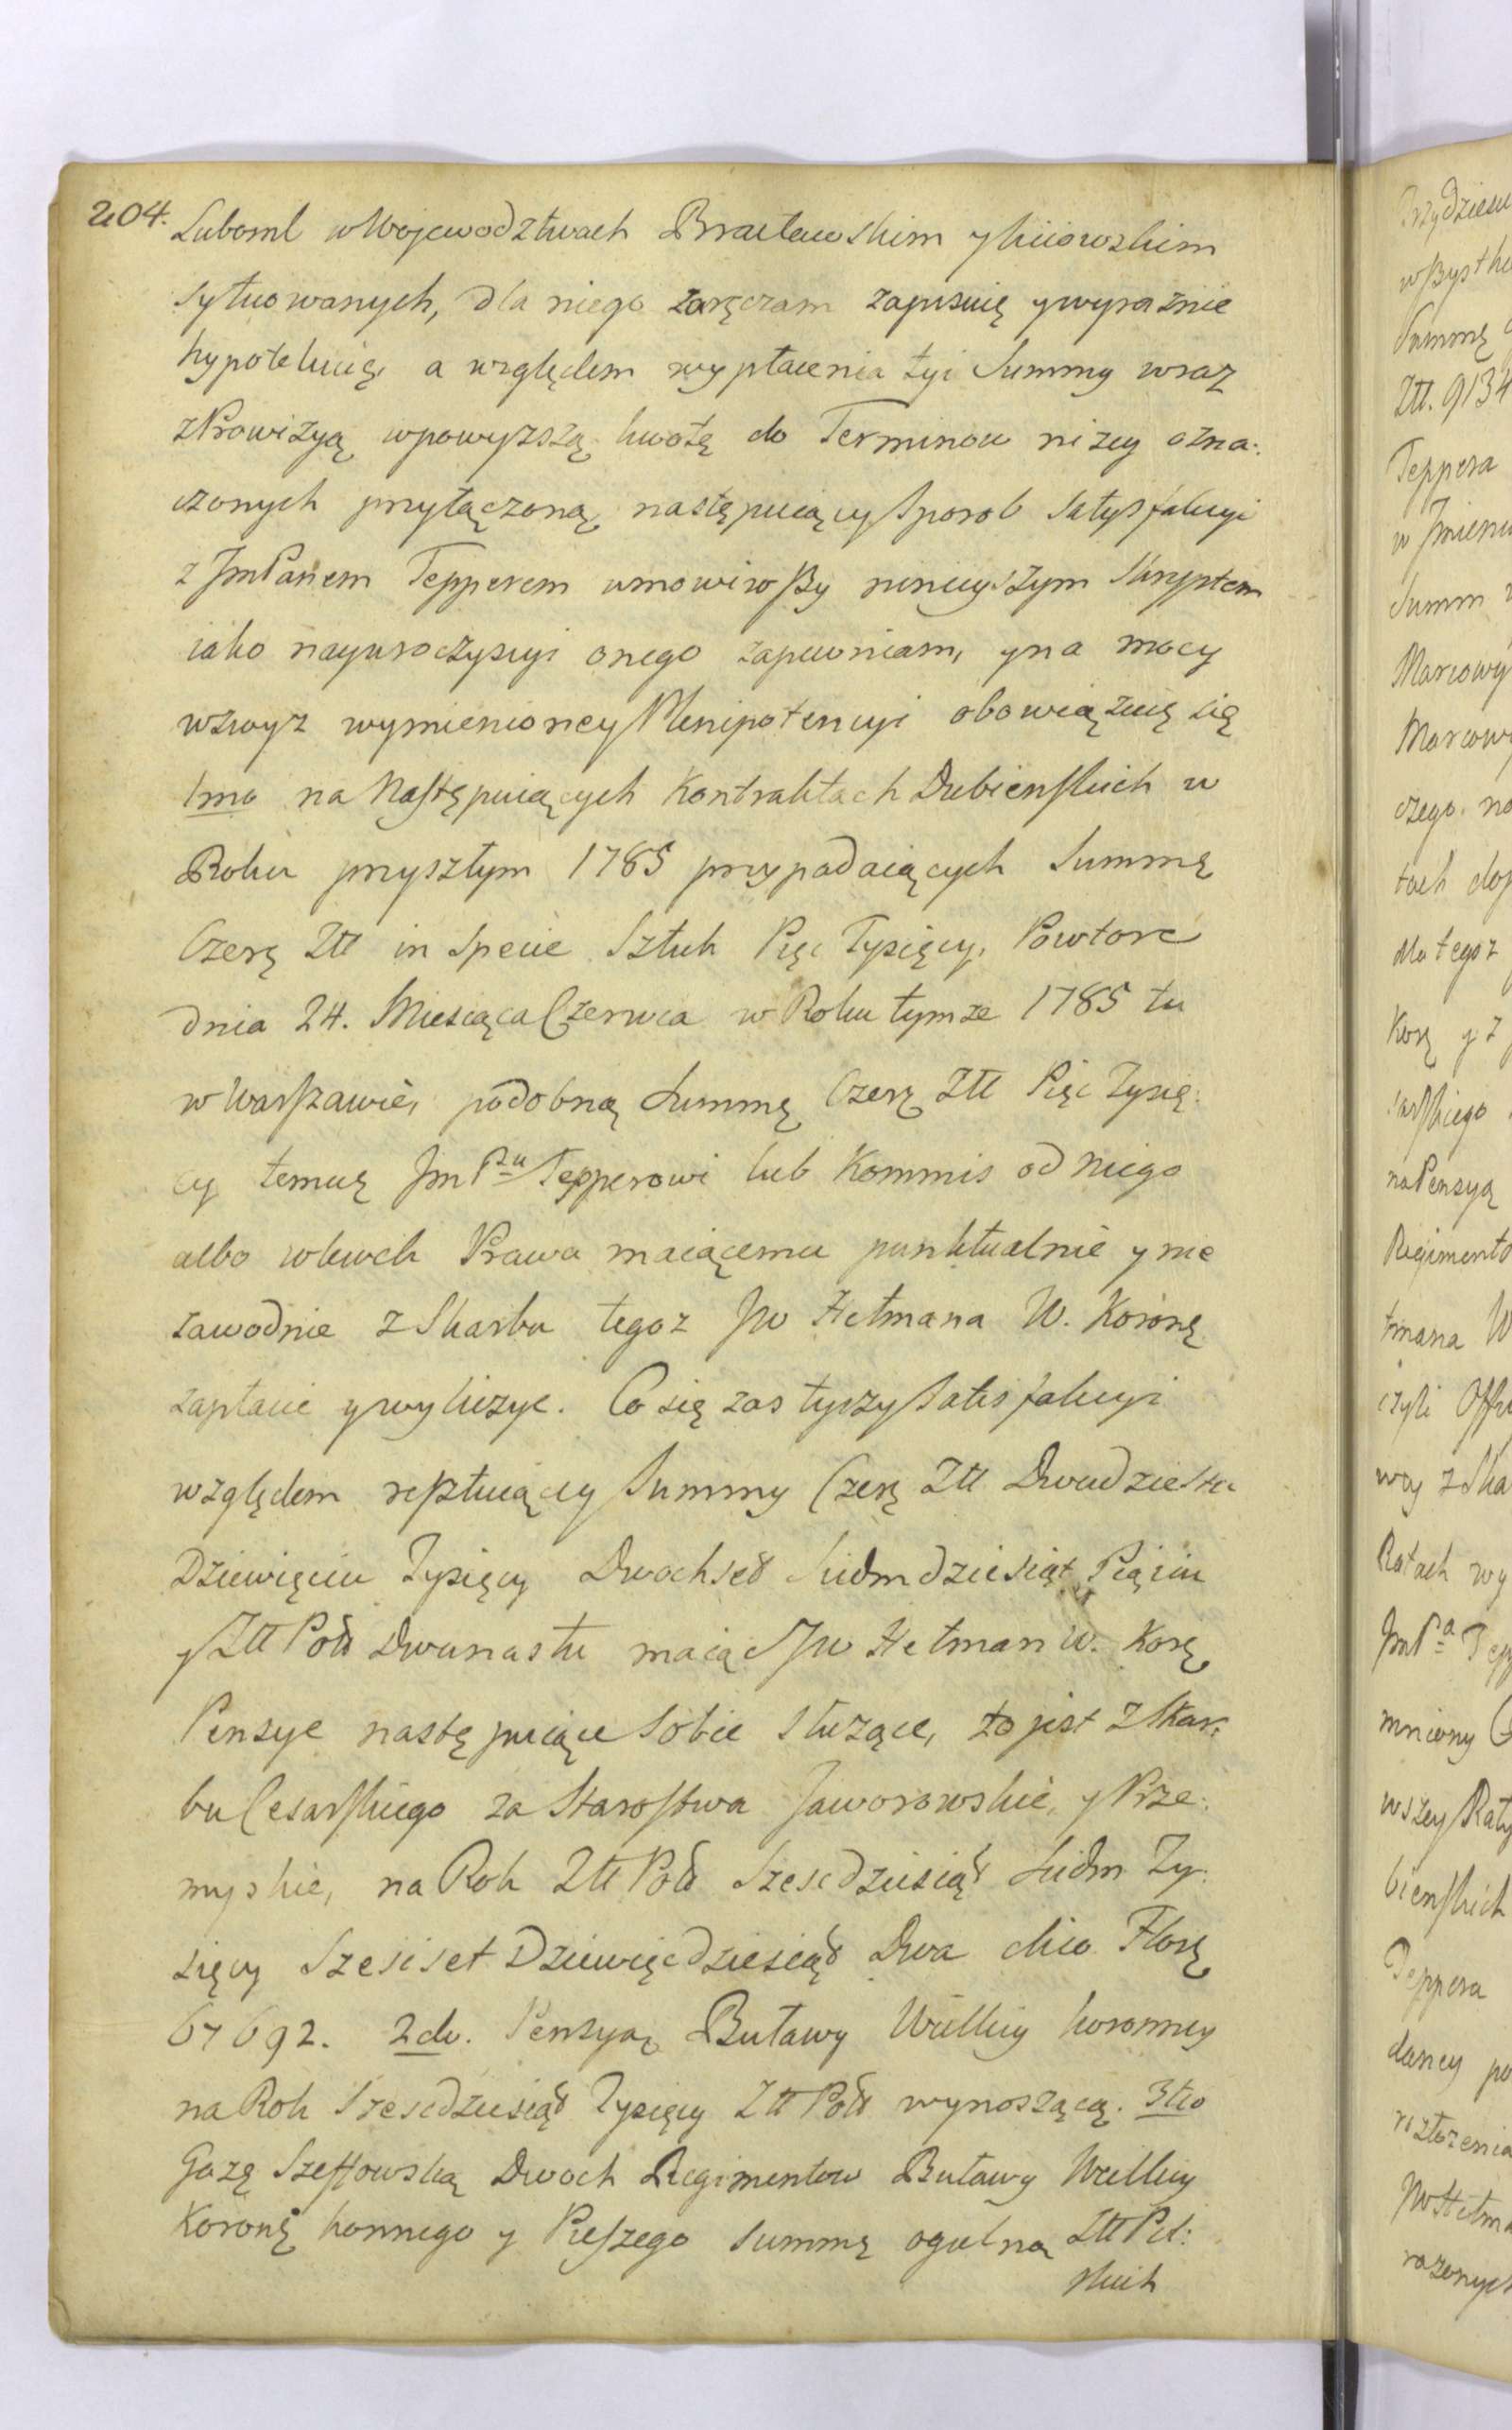 204.
Luboml w Wojewodztwach Bracławskim y Kiiowskim
sytuowanych, dla niego zaręczam zapisuię y wyraznie
hypotekuię, a względem wypłacenia tyi Summy wraz
z Prowizyą w powyzszą kwotę do Terminow nizey ozna:
czonych przyłączoną, następuiący Sposob Satysfakcyi
z JmPanem Tepperem umowiwszy ninieyszym Skryptem
iako nayuroczyscyi onego zapewniam, y na mocy
wzwyz wymienioney Plenipotencyi obowiązuię się
1mo na Następuiących Kontraktach Dubienskich w
Roku przyszłym 1785 przypadaiących Summę
Czerę Ztt in Specie Sztuk Pięc Tysięcy, Powtore
dnia 24. Miesiąca Czerwca w Roku tymze 1785 tu
w Warszawie, podobną Summę Czerę Ztt Pięc Tysię:
cy temuz JmPnu Tepperowi lub Kommis od niego
albo wlewek Prawa maiącemu punktualnie y nie
zawodnie z Skarbu tegoz JW Hetmana W. Koronę
zapłacic y wyliczyc. Co się zas tyczy Satisfakcyi
względem resztuiącey Summy Czerę Ztt Dwudziestu
Dziewięciu Tysięcy Dwochset Siedmdziesiąt Pięciu
y Ztt Pols Dwunastu maiąc JW Hetman W. Korę
Pensye następuiące Sobie Służące, to jest z Skar:
bu Cesarskiego za Starostwa Jaworowskie, y Prze:
myskie, na Rok Ztt Pols Szescdziesiąt Siedm Ty:
sięcy Szesciset Dziewięcdziesiąt Dwa dico Florę
67692. 2do. Pensyą Buławy Wielkiey koronney
na Rok Szescdziesiąt Tysięcy Ztt Pols wynoszącą. 3tio
Gazę Szeffowską Dwoch Regimentow Buławy Wielkiey
Koronę konnego y Pieszego Summę ogulną Ztt Pol:
skich